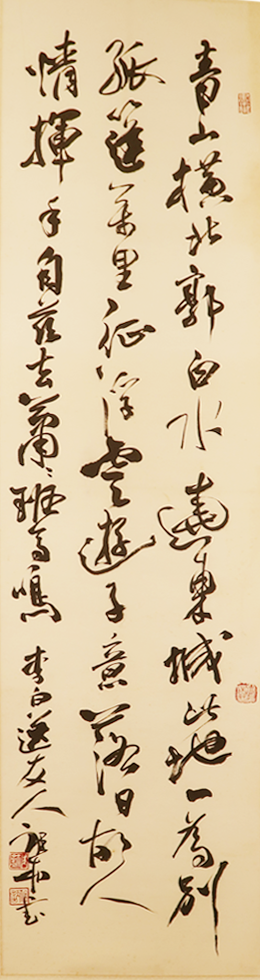 青山橫北郭白水遶東城此地一為別
孤篷萬里征浮雲遊子意落日故人
情揮手自茲去蕭々班馬鳴 李白送友人 書